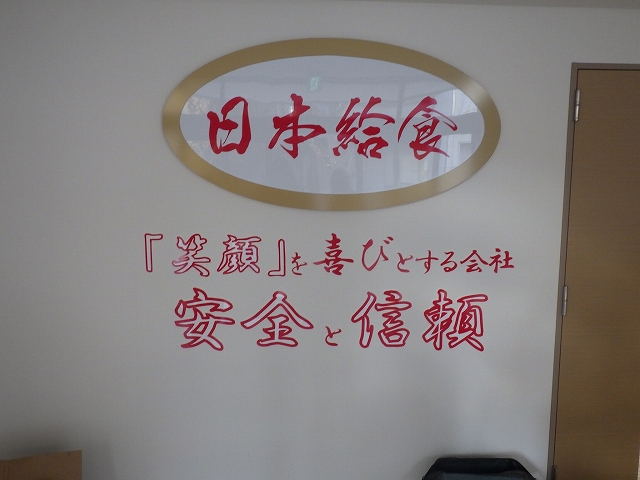 日本給食
「笑顔」を喜びとする会社
安全と信頼